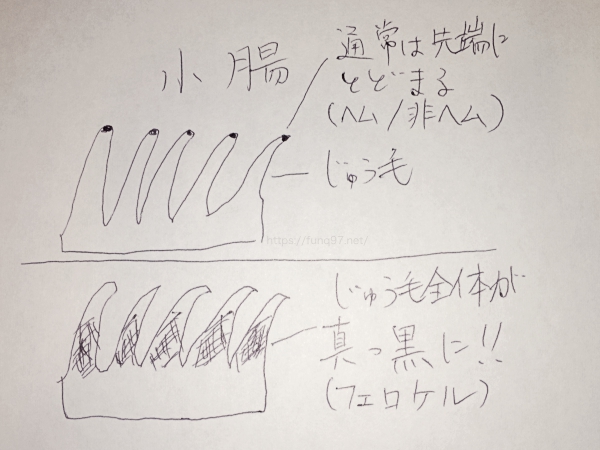 小腸
通常は先端に
とどまる
(ヘム/非ヘム)
じゅう毛
https://funq97.net/
じゅう毛全体が
真っ黒に!!
(フェロケル)